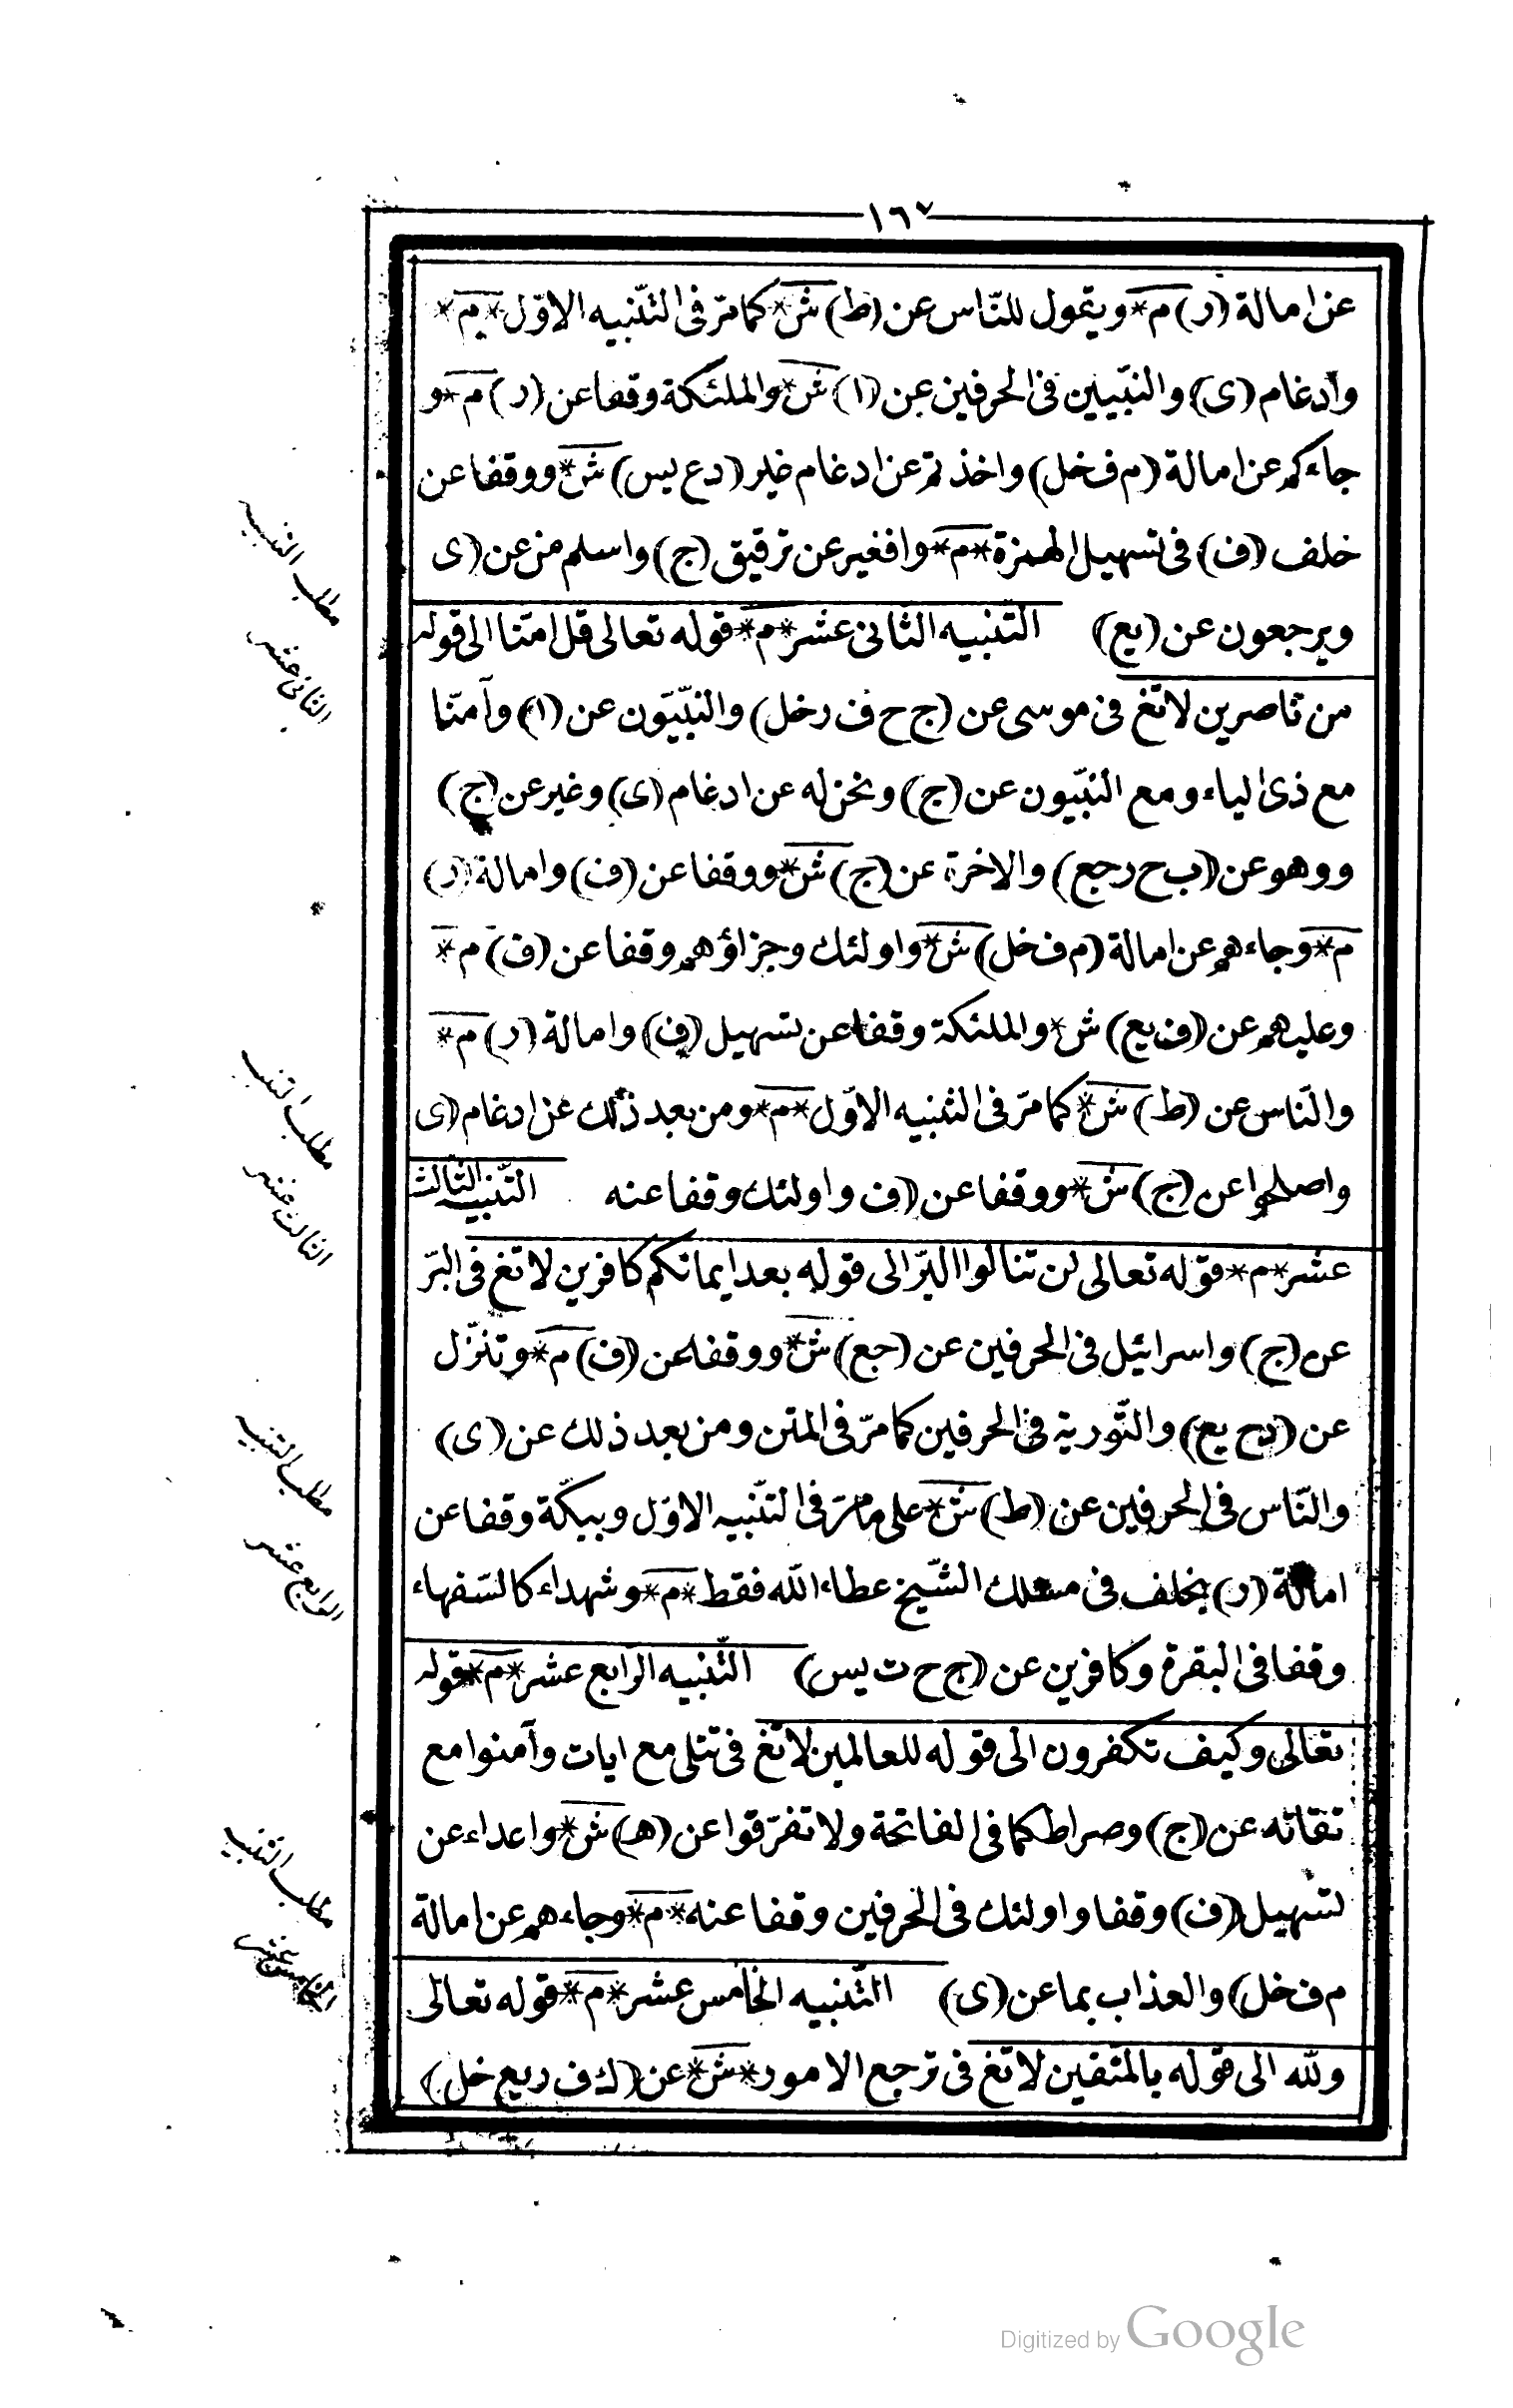 ١٦٧
عن امالة (ر) م* ويقول للنّاس عن (ط) ش* كما مرّ فى التّنبيه الاوّل *م*
وادغام (ى) والنبّيين فى الحرفين عن (ا) ش* والملئكة وقفا عن (ر) م* و
جاءكم عن امالة (م ف خل) واخذتم عن ادغام غير (د ع يس) ش* ووقفا عن
خلف (ف) فى تسهيل الهمزة *م* وافغير عن ترقيق (ج) واسلم من عن (ى
ويرجعون عن (يع) التّنبيه الثانى عشر *م* قوله تعالى قل امنّا الى قوله
من ناصرين لا تغ فى موسى عن (ج ح ف ر خل) والنبّيّون عن (ا) وآمنّا
مع ذى الياء ومع النبّيون عن (ج) ونحن له عن ادغام (ى) وغير عن (ج)
ووهو عن (ب ح ر جع) والاخرة عن (ج) ش* ووقفا عن (ف) وامالة (ر)
م* وجاءهم عن امالة (م ف خل) ش* واولئك وجزاؤهم وقفا عن (ف) م*
وعليهم عن (ف يع) ش* والملئكة وقفا عن تسهيل (ف) وامالة (ر) م*
والنّاس عن (ط) ش* كما مرّ فى التنبيه الاوّل *م* ومن بعد ذلك عن ادغام (ى
واصلحوا عن (ج) ش* ووقفا عن (ف واولئك وقفا عنه التّنبيه الثّالث
عشر *م* قوله تعالى لن تنالوا البرّ الى قوله بعد ايمانكم كافرين لا تغ فى البرّ
عن (ج) واسرائيل فى الحرفين عن (جع) ش* ووقفا عن (ف) م* وتنزّل
عن (د ح يع) والتّورية فى الحرفين كما مرّ فى المتن ومن بعد ذلك عن (ى)
والنّاس فى الحرفين عن (ط) ش* على ما مرّ فى التّنبيه الاوّل وببكّة وقفا عن
امالة (ر) بخلف فى مسلك الشّيخ عطاء الله فقط *م* وشهداء كالسّفهاء
وقفا فى البقرة وكافرين عن (ج ح ت يس) التّنبيه الرّابع عشر *م* قوله
تعالى وكيف تكفرون الى قوله للعالمين لا تغ فى تتلى مع ايات وآمنوا مع
تقاته عن (ج) وصراط كما فى الفاتحة ولا تفرّقوا عن (هـ) ش* واعداء عن
تسهيل (ف) وقفا واولئك فى الحرفين وقفا عنه *م* وجاءهم عن امالة
م ف خل) والعذاب بما عن (ى) التّنبيه الخامس عشر *م* قوله تعالى
ولله الى قوله بالمتقين لا تغ فى ترجع الامور *ش* عن (ك ف ر يع خل)
مطلب التنبيه
الثانى عشر
مطلب التنبيه
الثالث عشر
مطلب التنبيه
الرابع عشر
مطلب التنبيه
الخامس عشر
Digitized by Google